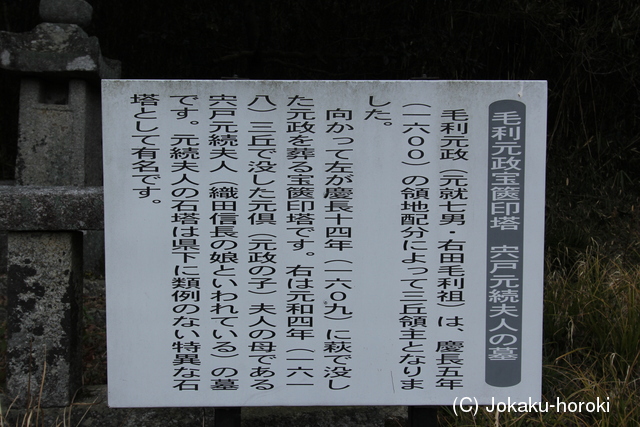 毛利元政宝篋印塔　宍戸元続夫人の墓
毛利元政（元就七男・右田毛利祖）は、慶長五年
（一六〇〇）の領地配分によって三丘領主となりま
した。
向かって左が慶長十四年（一六〇九）に萩で没し
た元政を葬る宝篋印塔です。右は元和四年（一六一
八）三丘で没した元倶（元政の子）夫人の母である
宍戸元続夫人（織田信長の娘といわれている）の墓
です。元続夫人の石塔は県下に類例のない特異な石
塔として有名です。
(C) Jokaku-horoki